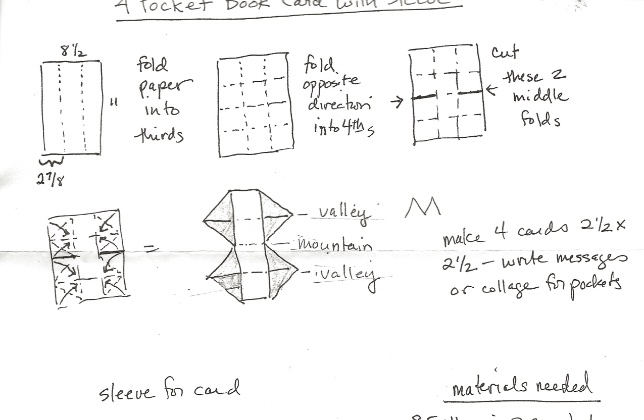 4 Pocket Book Card with Sleeve
8½
fold
paper
into
thirds
11
2⅞
fold
opposite
direction
into 4ths
cut
these 2
middle
folds
valley
mountain
valley
make 4 cards 2½ x
2½ - write messages
or collage for pockets
sleeve for card
materials needed